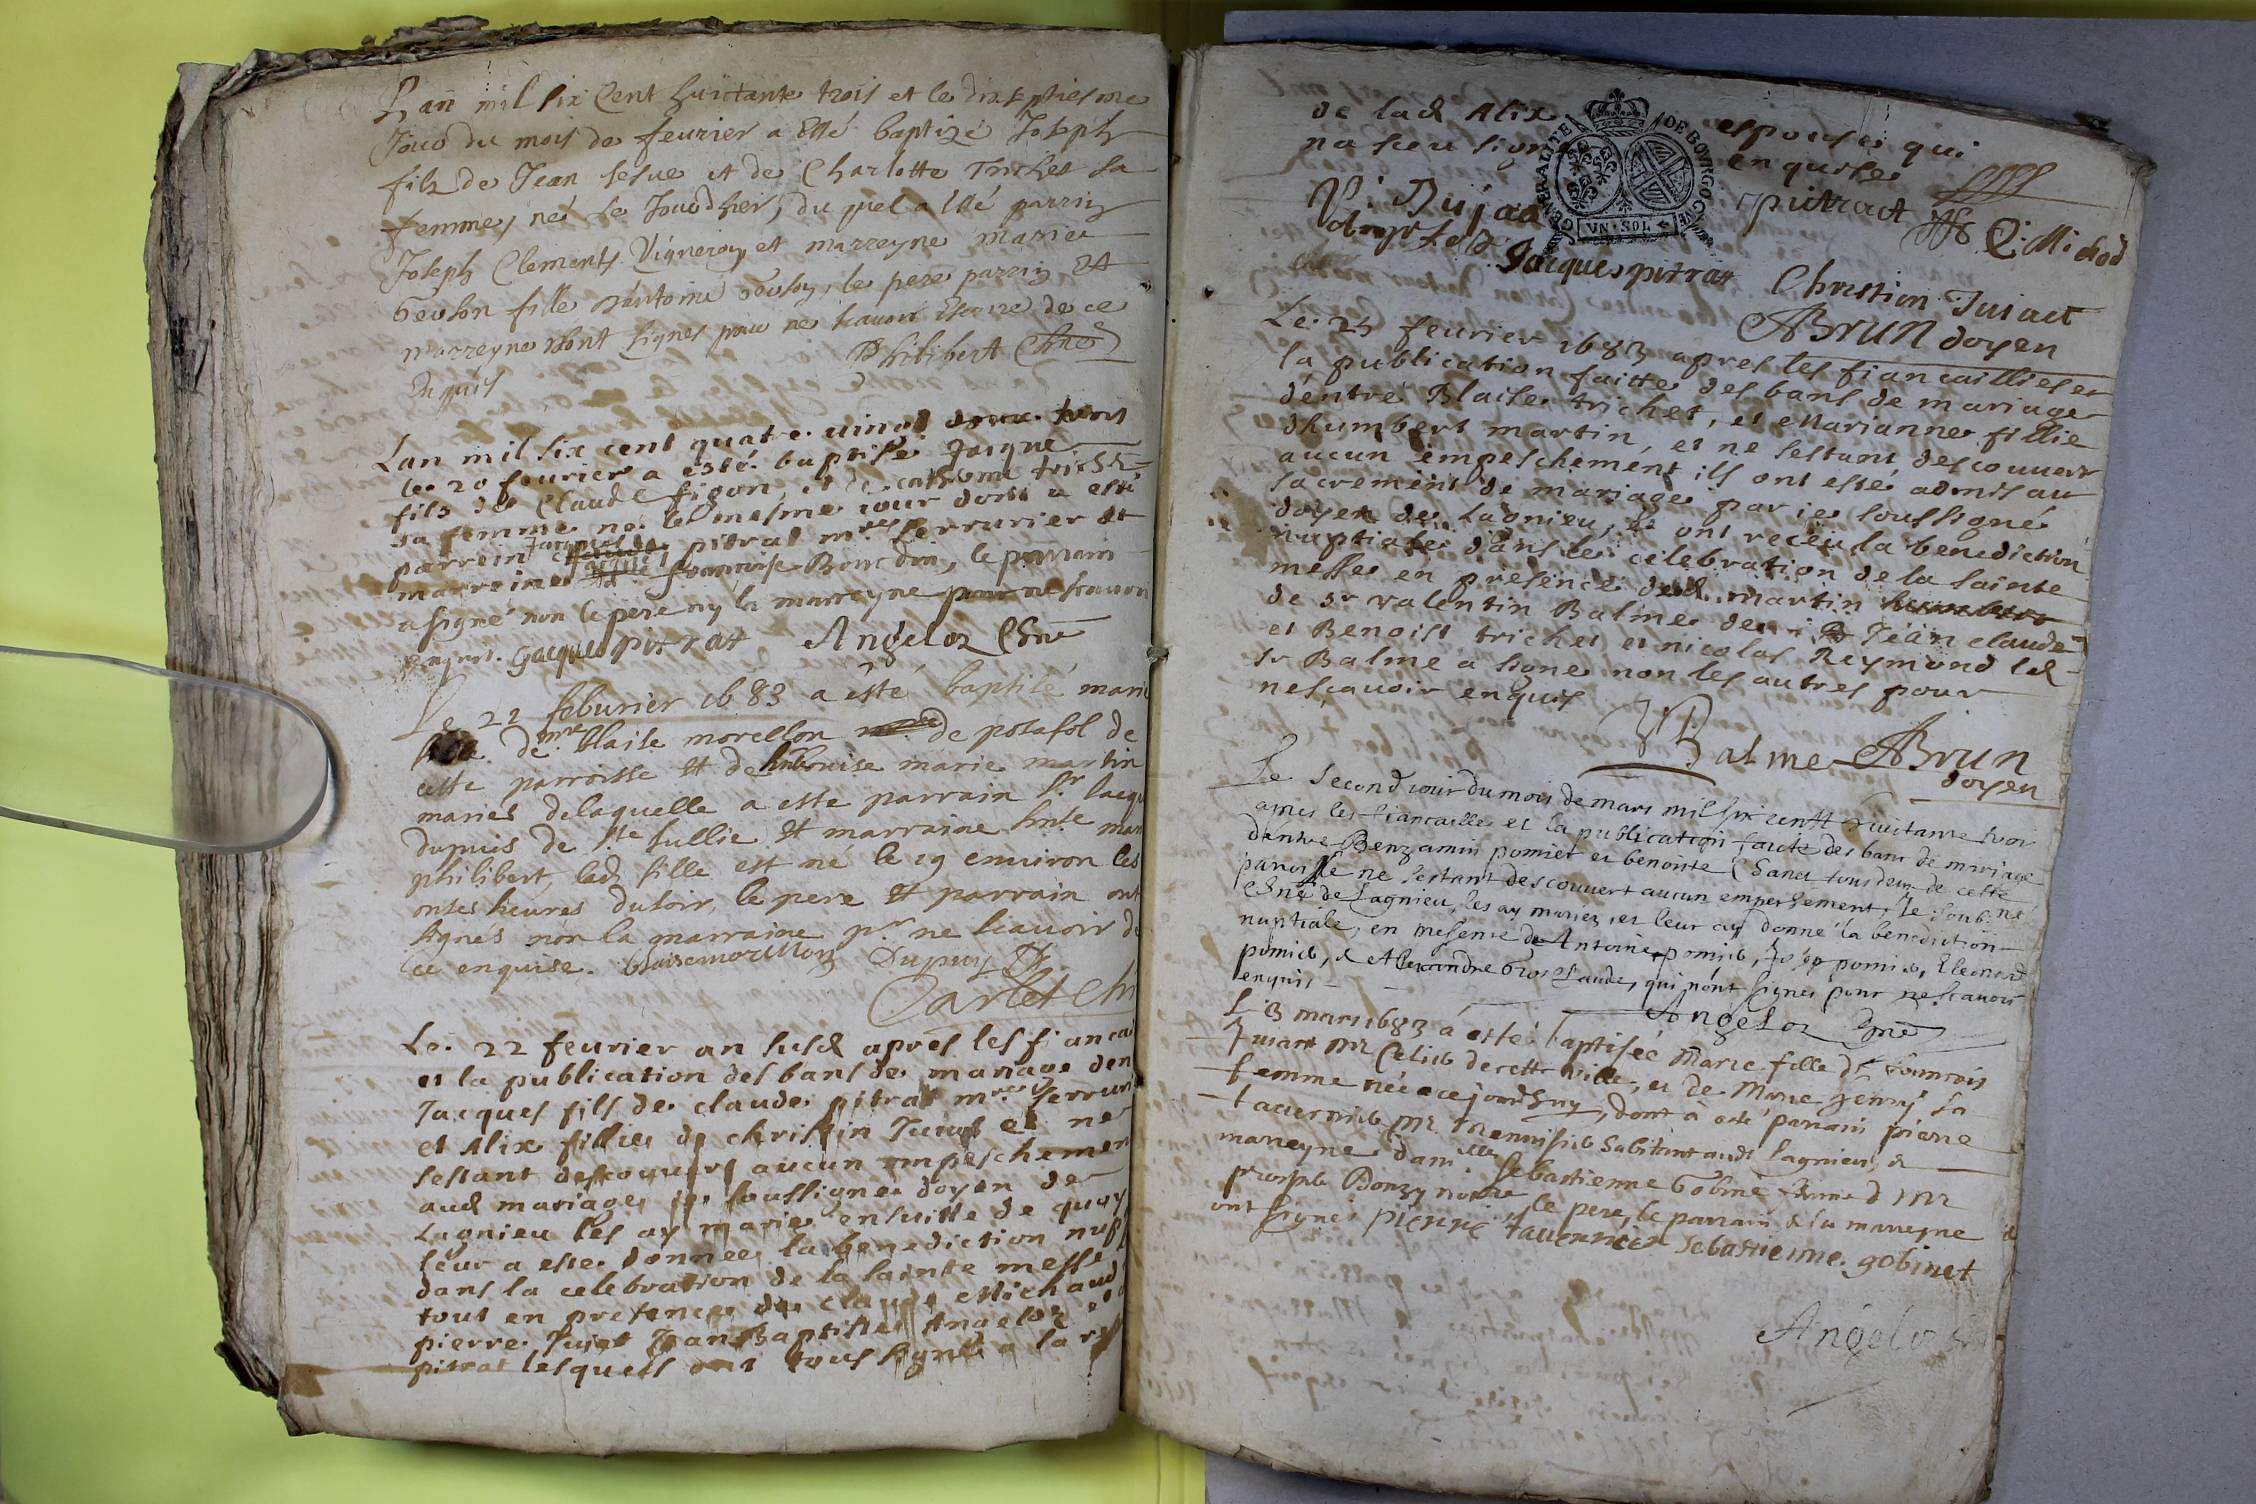 Lan mil six Cent huictante trois et le dixseptiesme
Jour du mois de feurier a Esté baptizé Joseph
filz de Jean sesue et de Charlotte Trichet sa
femme, né le Jourdhier, du quel a esté parrin
Joseph Clement Vigneron, et marreyne marie
fille d'antoine le pere parrin Et
marreyne nont signes pour ne scauoir Escrire de ce
Enquis Philibert Chne
Lan mil six cent quatre uingt deux trois
le 20 feurier a esté baptisé Jaque
fils de Claude figon, et de catherine trichet
sa femme né le mesme iour dont a esté
parrein Jacques pitrat mre serrurier et
marreine francoise Bourdin, le parrain
a signé non le pere ny la marreyne pour ne scauoir
enquis. Jacques pitrat Angeloz Chne
Le 22 feburier 1683 a esté baptisé marie
fille de mre blaise morellon de posafol de
cette parroisse et de marie martin
mariés delaquelle a este parrain sr Jacqu
dupuis de ste Jullie et marraine
philibert, lad fille est né le 19 enuiron les
onses heures du soir, le pere et parrain ont
signés non la marraine pr ne scauoir de
ce enquise. blaise morellon Dupuy
Carlet Ch
Le 22 feurier an susd apres les fiancai
et la publication des bans de mariage den
Jacques fils de claude pitrat mre serruri
et Alix fillie de christin Juiat et ne
sestant descouuert aucun empeschemen
aud mariage je soussigné doyen de
Lagnieu les ay mariés ensuitte de quoy
leur a esté donnee la benediction nup
dans la celebration de la sainte messe
tout en presence de claude Michaud
pierre Juiat Jean Baptiste Angeloz
pitrat lesquels ont tous signé a la r
de lad Alix espouse qui
na sceu signer enquise
GENERALITE DE BOVRGOGNE
VN·SOL
P. Dujaa pitrat C. Michod
Jacques pitrat Christin Juiact
ABrun doyen
Le 25 feurier 1683 apres les fiancaillies et
la publication faitte des bans de mariage
dentre Blaise trichet, et Marianne fillie
dhumbert martin, et ne sestant descouuert
aucun empeschement ils ont esté admis au
sacrement de mariage par je soussigné
doyen de Lagnieu, et ont receu la benediction
nuptiale dans la celebration de la sainte
messe en presence dud martin
de sr valentin Balme de Jean claude
et Benoist trichet et nicolas Reymond led
sr Balme a signé non les autres pour
ne scauoir enquis
Balme ABrun
doyen
Le second iour du mois de mars mil six centt huitante trois
apres les fiancailles et la publication faicte des bans de mariage
dentre Benjamin pomier et benoiste Sanct tous deux de cette
paroisse ne sestant descouuert aucun empeschement, Je soubsne
Chne de Lagnieu, les ay mariez, et leur ay donné la benediction
nuptiale, en presence de Antoine pomier, pomier, Eleonard
pomier, & Alexandre Gros Claude, qui nont signes pour ne scauoir
enquis
Angeloz Chne
Le 3 mars 1683 a esté baptisée Marie fille de francois
Juiant Mr de cette ville, et de Marie Jenry sa
femme née ce jourdhuy, dont a esté parrain pierre
tauernier Mr Mennisier habitant audt Lagnieu, &
marreyne damlle Sebastienne Gobine femme d Mr
prosper Bonzy noire, le pere, le parrain & la marreyne
ont signes pierre tauernier Sebastienne gobinet
Angeloz